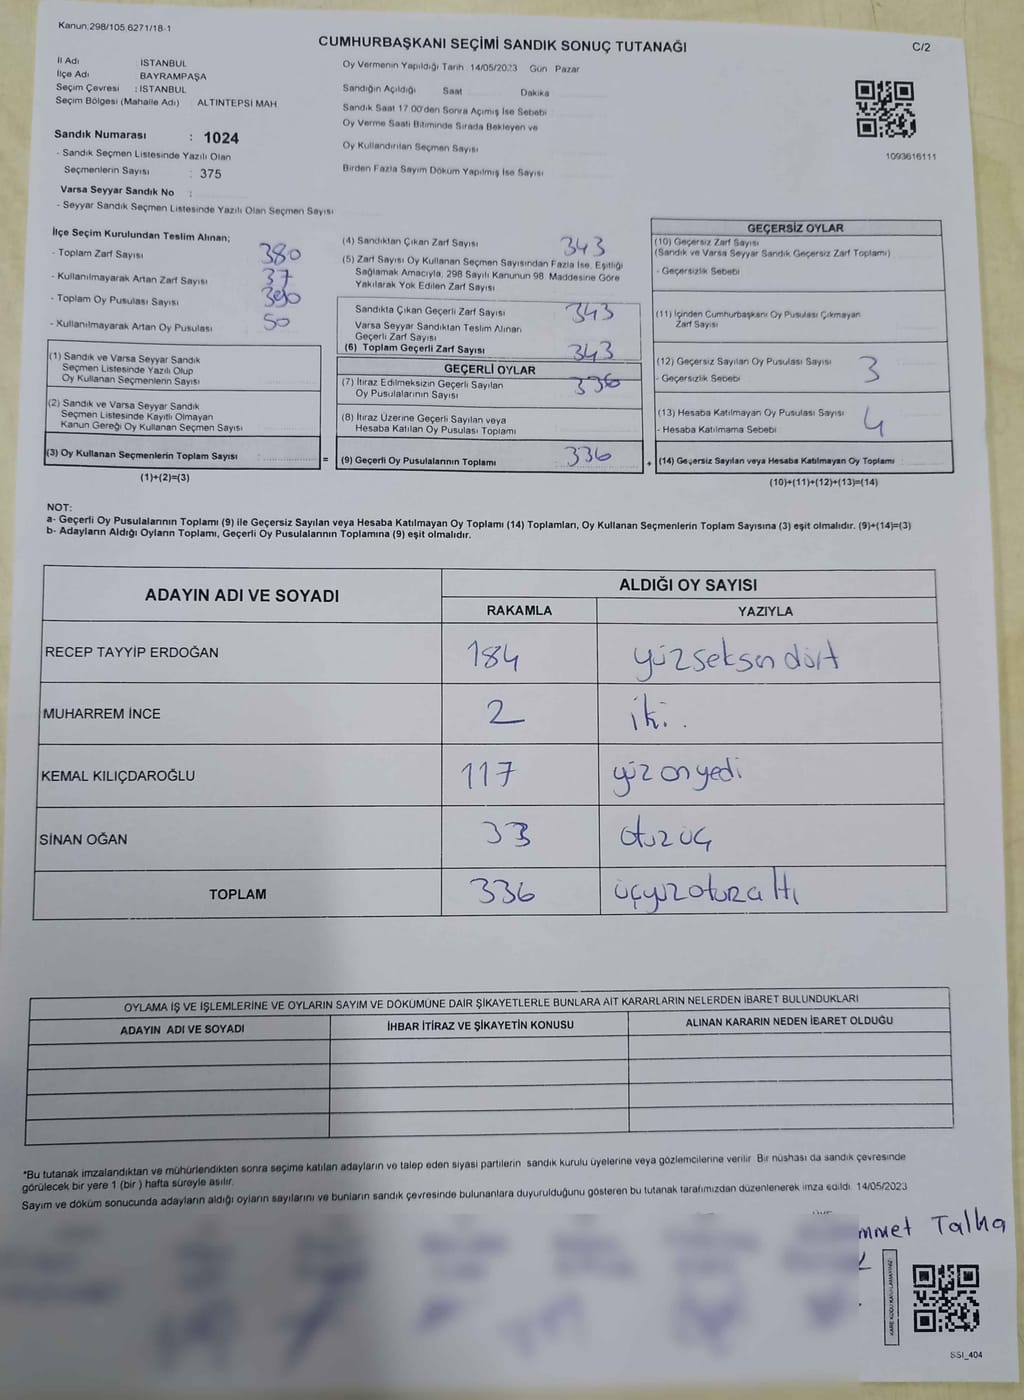 Kanun:298/105,6271/18-1
CUMHURBAŞKANI SEÇİMİ SANDIK SONUÇ TUTANAĞI
C/2
İl Adı : İSTANBUL
İlçe Adı : BAYRAMPAŞA
Seçim Çevresi : İSTANBUL
Seçim Bölgesi (Mahalle Adı) ALTINTEPSİ MAH
Sandık Numarası : 1024
- Sandık Seçmen Listesinde Yazılı Olan
Seçmenlerin Sayısı : 375
Varsa Seyyar Sandık No :
- Seyyar Sandık Seçmen Listesinde Yazılı Olan Seçmen Sayısı
Oy Vermenin Yapıldığı Tarih 14/05/2023 Gün Pazar
Sandığın Açıldığı Saat Dakika
Sandık Saat 17.00'den Sonra Açılmış İse Sebebi
Oy Verme Saati Bitiminde Sırada Bekleyen ve
Oy Kullandırılan Seçmen Sayısı
Birden Fazla Sayım Döküm Yapılmış İse Sayısı
1093616111
İlçe Seçim Kurulundan Teslim Alınan;
- Toplam Zarf Sayısı 380
- Kullanılmayarak Artan Zarf Sayısı 37
- Toplam Oy Pusulası Sayısı 390
- Kullanılmayarak Artan Oy Pusulası 50
(1) Sandık ve Varsa Seyyar Sandık
Seçmen Listesinde Yazılı Olup
Oy Kullanan Seçmenlerin Sayısı
(2) Sandık ve Varsa Seyyar Sandık
Seçmen Listesinde Kayıtlı Olmayan
Kanun Gereği Oy Kullanan Seçmen Sayısı
(3) Oy Kullanan Seçmenlerin Toplam Sayısı : =
(1)+(2)=(3)
(4) Sandıktan Çıkan Zarf Sayısı 343
(5) Zarf Sayısı Oy Kullanan Seçmen Sayısından Fazla İse, Eşitliği
Sağlamak Amacıyla, 298 Sayılı Kanunun 98. Maddesine Göre
Yakılarak Yok Edilen Zarf Sayısı
Sandıkta Çıkan Geçerli Zarf Sayısı 343
Varsa Seyyar Sandıktan Teslim Alınan
Geçerli Zarf Sayısı
(6) Toplam Geçerli Zarf Sayısı 343
GEÇERLİ OYLAR
(7) İtiraz Edilmeksizin Geçerli Sayılan 336
Oy Pusulalarının Sayısı
(8) İtiraz Üzerine Geçerli Sayılan veya
Hesaba Katılan Oy Pusulası Toplamı
(9) Geçerli Oy Pusulalarının Toplamı 336 +
GEÇERSİZ OYLAR
(10) Geçersiz Zarf Sayısı
(Sandık ve Varsa Seyyar Sandık Geçersiz Zarf Toplamı)
- Geçersizlik Sebebi
(11) İçinden Cumhurbaşkanı Oy Pusulası Çıkmayan
Zarf Sayısı
(12) Geçersiz Sayılan Oy Pusulası Sayısı 3
- Geçersizlik Sebebi
(13) Hesaba Katılmayan Oy Pusulası Sayısı 4
- Hesaba Katılmama Sebebi
(14) Geçersiz Sayılan veya Hesaba Katılmayan Oy Toplamı
(10)+(11)+(12)+(13)=(14)
NOT:
a- Geçerli Oy Pusulalarının Toplamı (9) ile Geçersiz Sayılan veya Hesaba Katılmayan Oy Toplamı (14) Toplamları, Oy Kullanan Seçmenlerin Toplam Sayısına (3) eşit olmalıdır. (9)+(14)=(3)
b- Adayların Aldığı Oyların Toplamı, Geçerli Oy Pusulalarının Toplamına (9) eşit olmalıdır.
ADAYIN ADI VE SOYADI ALDIĞI OY SAYISI
RAKAMLA YAZIYLA
RECEP TAYYİP ERDOĞAN 184 yüzseksen dört
MUHARREM İNCE 2 iki.
KEMAL KILIÇDAROĞLU 117 yüz on yedi
SİNAN OĞAN 33 otuz üç
TOPLAM 336 üçyüzotuzaltı
OYLAMA İŞ VE İŞLEMLERİNE VE OYLARIN SAYIM VE DÖKÜMÜNE DAİR ŞİKAYETLERLE BUNLARA AİT KARARLARIN NELERDEN İBARET BULUNDUKLARI
ADAYIN ADI VE SOYADI İHBAR İTİRAZ VE ŞİKAYETİN KONUSU ALINAN KARARIN NEDEN İBARET OLDUĞU
*Bu tutanak imzalandıktan ve mühürlendikten sonra seçime katılan adayların ve talep eden siyasi partilerin sandık kurulu üyelerine veya gözlemcilerine verilir. Bir nüshası da sandık çevresinde
görülecek bir yere 1 (bir ) hafta süreyle asılır.
Sayım ve döküm sonucunda adayların aldığı oyların sayılarını ve bunların sandık çevresinde bulunanlara duyurulduğunu gösteren bu tutanak tarafımızdan düzenlenerek imza edildi. 14/05/2023
mmet Talha
SSI_404